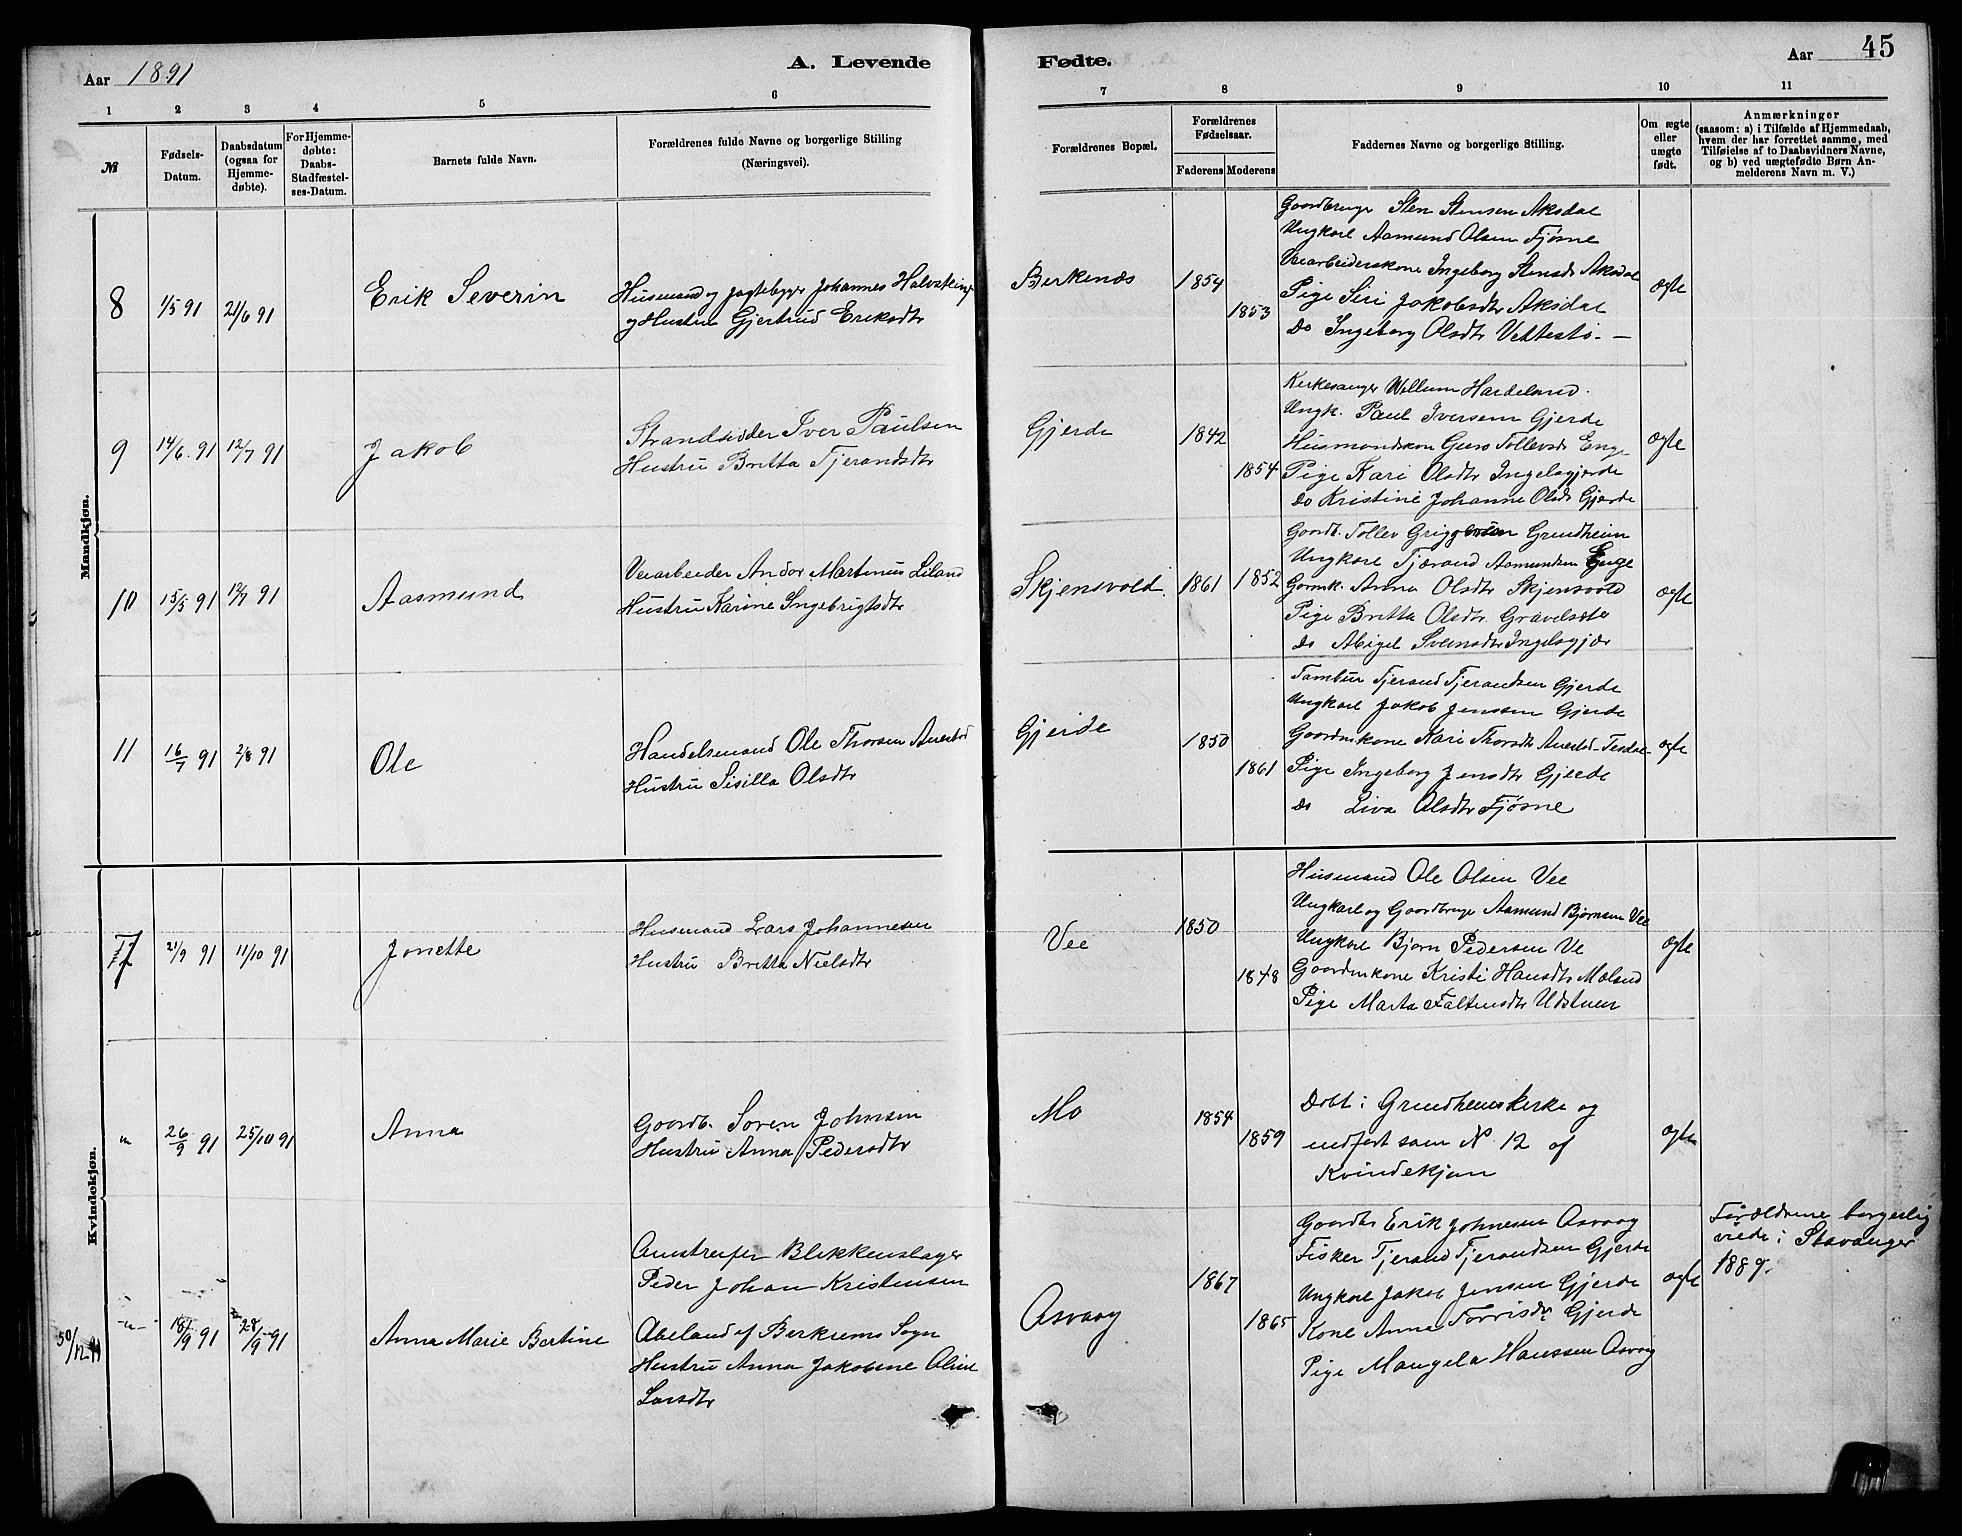 Aar 1891
A. Levende
Fødte.
Aar 45
1 2 3 4 5 6 7 8 9 10 11
№
Fødsels-
Datum.
Daabsdatum
(ogsaa for
Hjemme-
døbte).
For Hjemme-
døbte:
Daabs-
Stadfæstel-
ses-Datum.
Barnets fulde Navn.
Forældrenes fulde Navne og borgerlige Stilling
(Næringsvei).
Forældrenes Bopæl.
Forældrenes
Fødselsaar.
Faderens Moderens
Faddernes Navne og borgerlige Stilling.
Om ægte
eller
uægte
født.
Anmærkninger
(saasom: a) i Tilfælde af Hjemmedaab,
hvem der har forrettet samme, med
Tilføielse af to Daabsvidners Navne,
og b) ved uægtefødte Børn An-
melderens Navn m. V.)
Mandkjøn.
8
1/5 91
21/6 91
Erik Severin
Husmand og Jagtebygger Johannes
og Hustru Gjertrud Eriksdtr
Berkenæs
1854
1853
Goordbruge Sten Stensen Aksdal
Ungkarl Aamund Olsen Fjøsne
Veiarbeiderskone Ingeborg Stensdr Aksdal
Pige Siri Jakobsdtr Aksdal
Do Ingeborg Olsdtr Vettestø —
ægte
9
14/6 91
12/7 91
Jakob
Strandsidder Iver Paulsen
Hustru Britta Tjerandsdtr
Gjerde
1842
1854
Kirkesanger Willum Hardeland.
Ungk. Paul Iversen Gjerde
Husmandskon Guro Tollevsd Enge
Pige Kari Olsdtr Ingelsgjerde
Do Kristine Johanne Olsdr Gjerde
ægte
10
15/5 91
12/7 91
Aasmund
Veiarbeider Andor Martinus Liland
Hustru Karine Ingebrigtsdtr
Skjensvold
1861
1852
Goordb. Tollev Grindheim
Ungkarl Tjærand Aamundsen Enge
Gormk. Anna Olsdtr Skjensvold
Pige Britta Olsdtr
Do Abigel Svensdtr Ingelsgjær
ægte
11
16/7 91
2/8 91
Ole
Handelsmand Ole Thorsen
Hustru Sisilla Olsdtr
Gjerde
1850
1861
Tambur Tjerand Tjerandsen Gjerde
Ungkarl Jakob Jenssen Gjerde
Goordmkone Kari Thorsdtr
Pige Ingeborg Jensdtr Gjerde
Do Liva Olsdtr Fjøsne
ægte
Kvindekjøn.
21/9 91
11/10 91
Jonette
Husmand Lars Johannesen
Hustru Britta Nielsdtr
Vee
1850
1848
Husmand Ole Olsen Vee
Ungkarl og Goordbruge Aamund Bjørnsen Vee
Ungkarl Bjørn Pedersen Ve
Goordmkone Kristi Hansdtr Mølsnd
Pige Marta Faltensdtr Udstuen
ægte
"
26/9 91
25/10 91
Anna
Goordb. Søren Johnsen
Hustru Anna Pedersdtr
Mo
1854
1859
Døbt i Grindheims kirke og
indført som N. 12 af
Kvindekjøn
ægte
50/12 91
—"—
18/9 91
28/9 91
Anna Marie Bertine
Omstreifer Blikkenslager
Peder Johan Kristensen
Abeland af Berkrems Sogn
Hustru Anna Jakobine Oline
Larsdtr
Osvaag
1867
1865
Goordbr Erik Johnesen Osvaag
Fisker Tjerand Tjerandsen Gjerde
Ungkarl Jakob Jensen Gjerde
Kone Anna Torrisdr Gjerde
Pige Mangela Hanssen Osvog
ægte
Forældrene borgerlig
viede i Stavanger
1889.